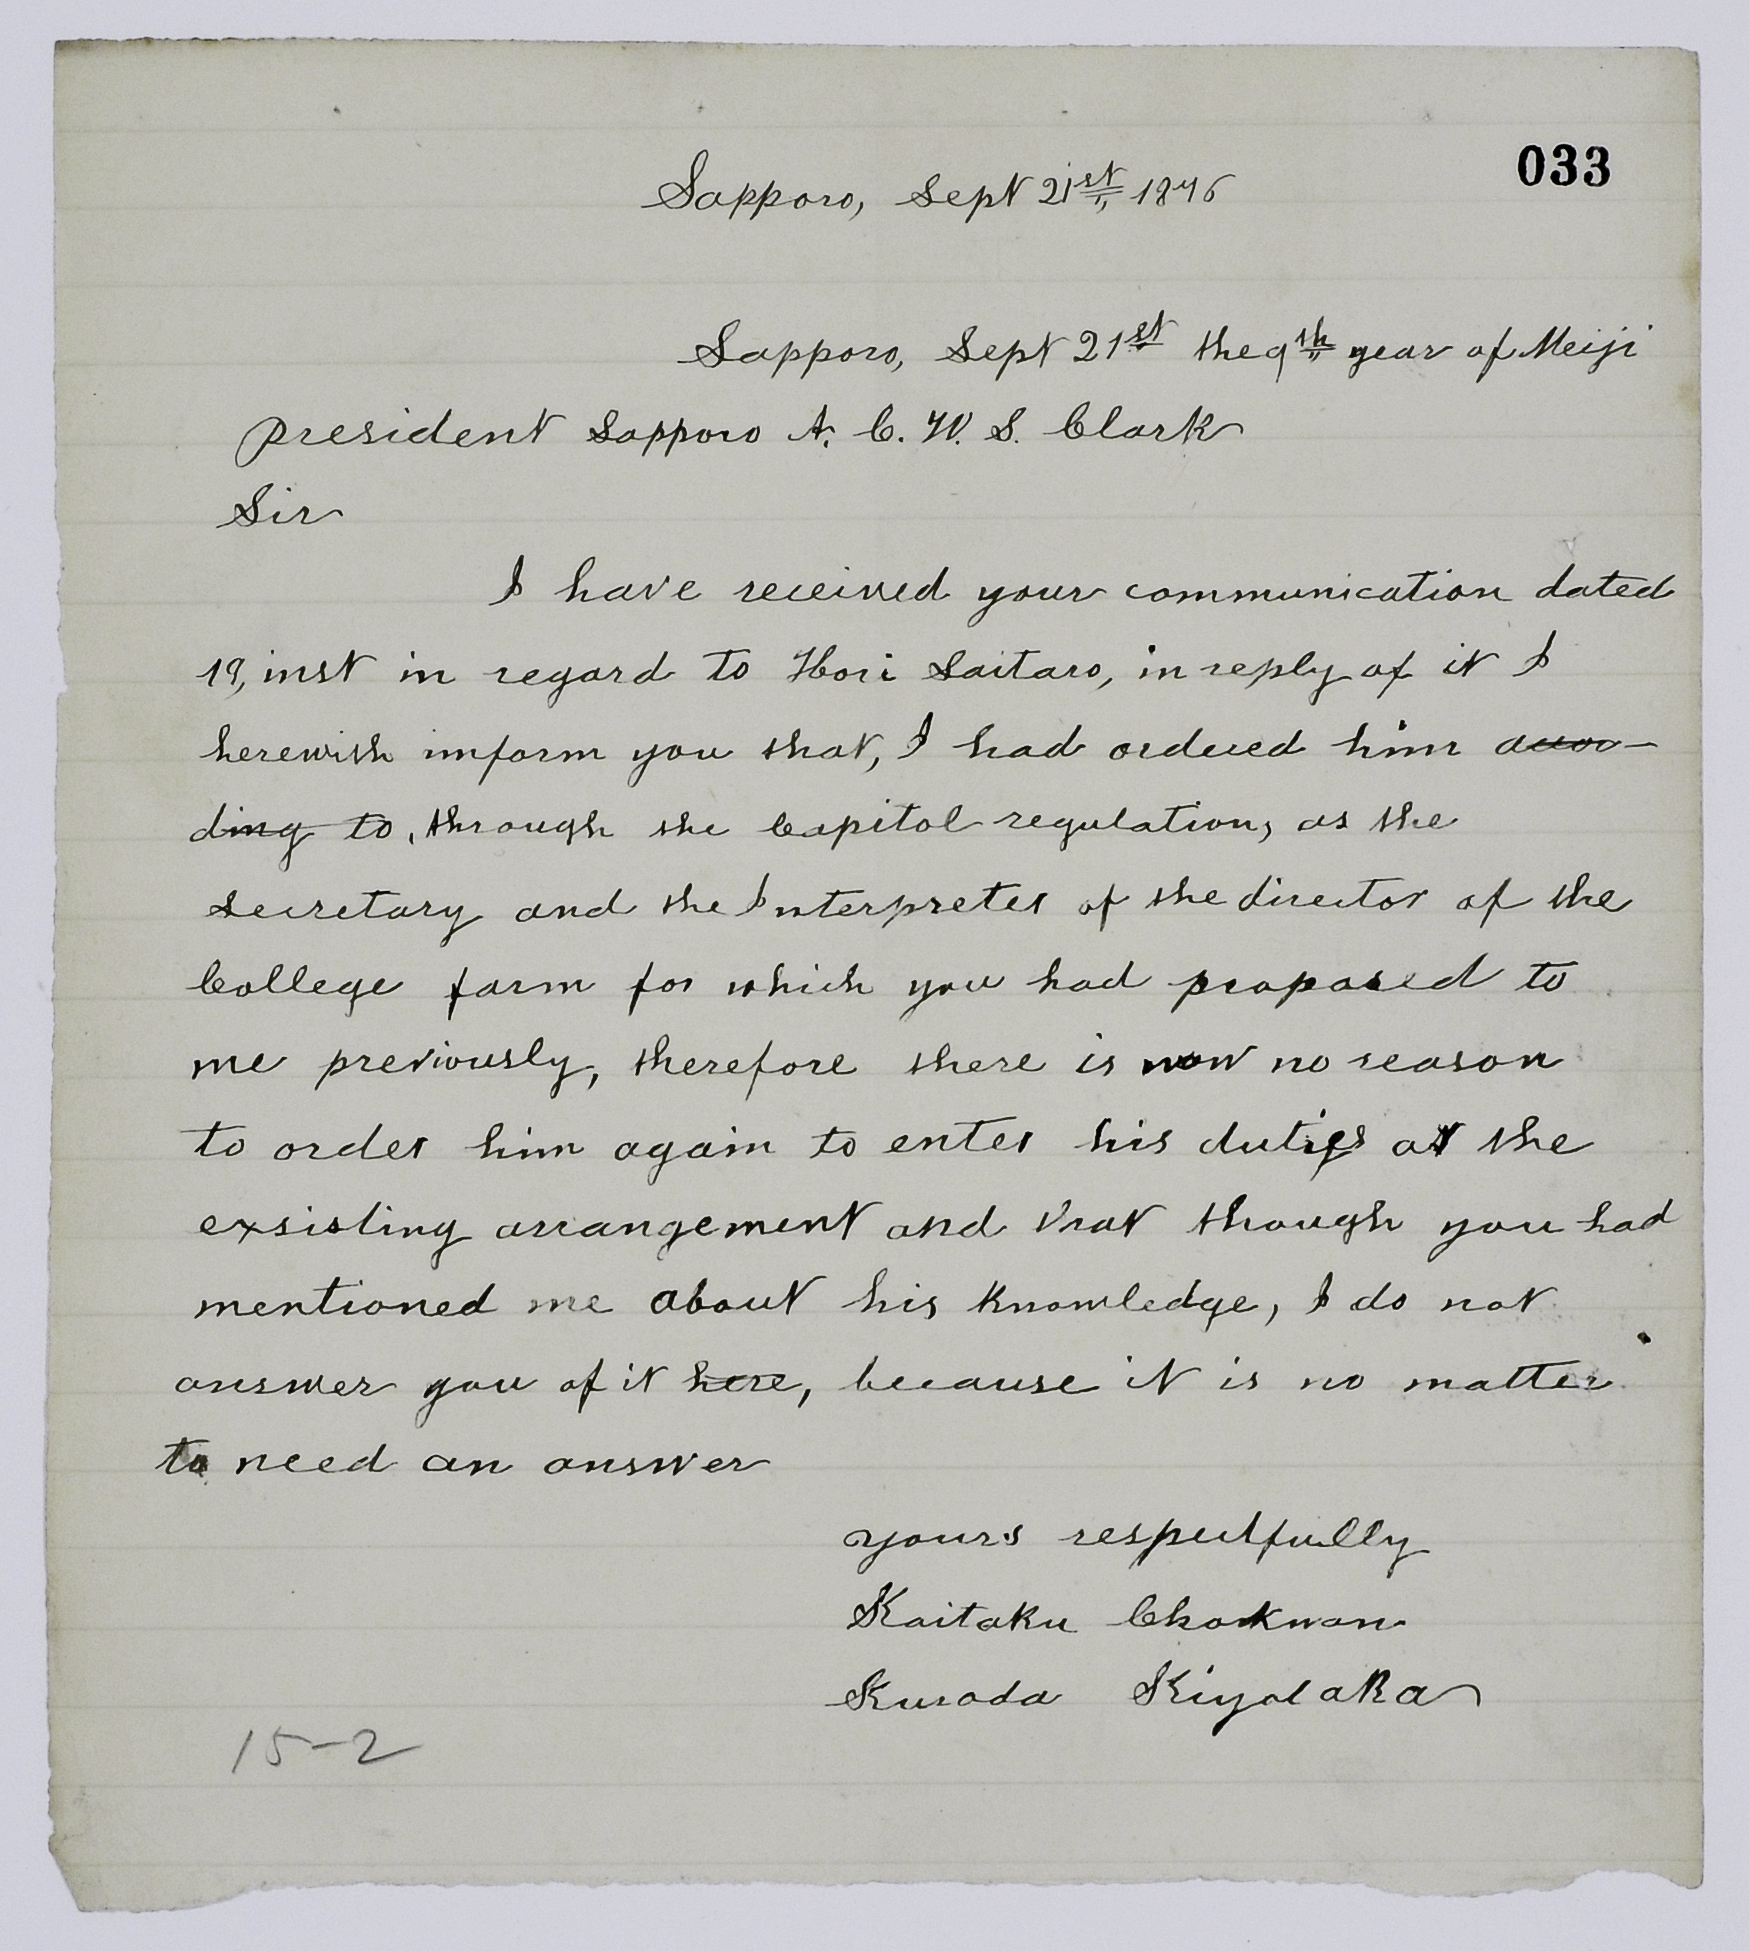 033
Sapporo, Sept 21st, 1876
Sapporo, Sept 21st the 9th year of Meiji
President Sapporo A. C. W. S. Clark
Sir
I have received your communication dated
19, inst in regard to Hori Saitaro, in reply of it I
herewith imform you that, I had ordered him accor-
ding to, through the Capitol regulation, as the
secretary and the Interpreter of the director of the
College farm for which you had proposed to
me previously, therefore there is now no reason
to order him again to enter his duties at the
exsisting arrangement and that though you had
mentioned me about his knowledge, I do not
answer you of it here, because it is no matter
to need an answer
yours respectfully
Kaitaku Chokwan
Kuroda Kiyotaka
15-2